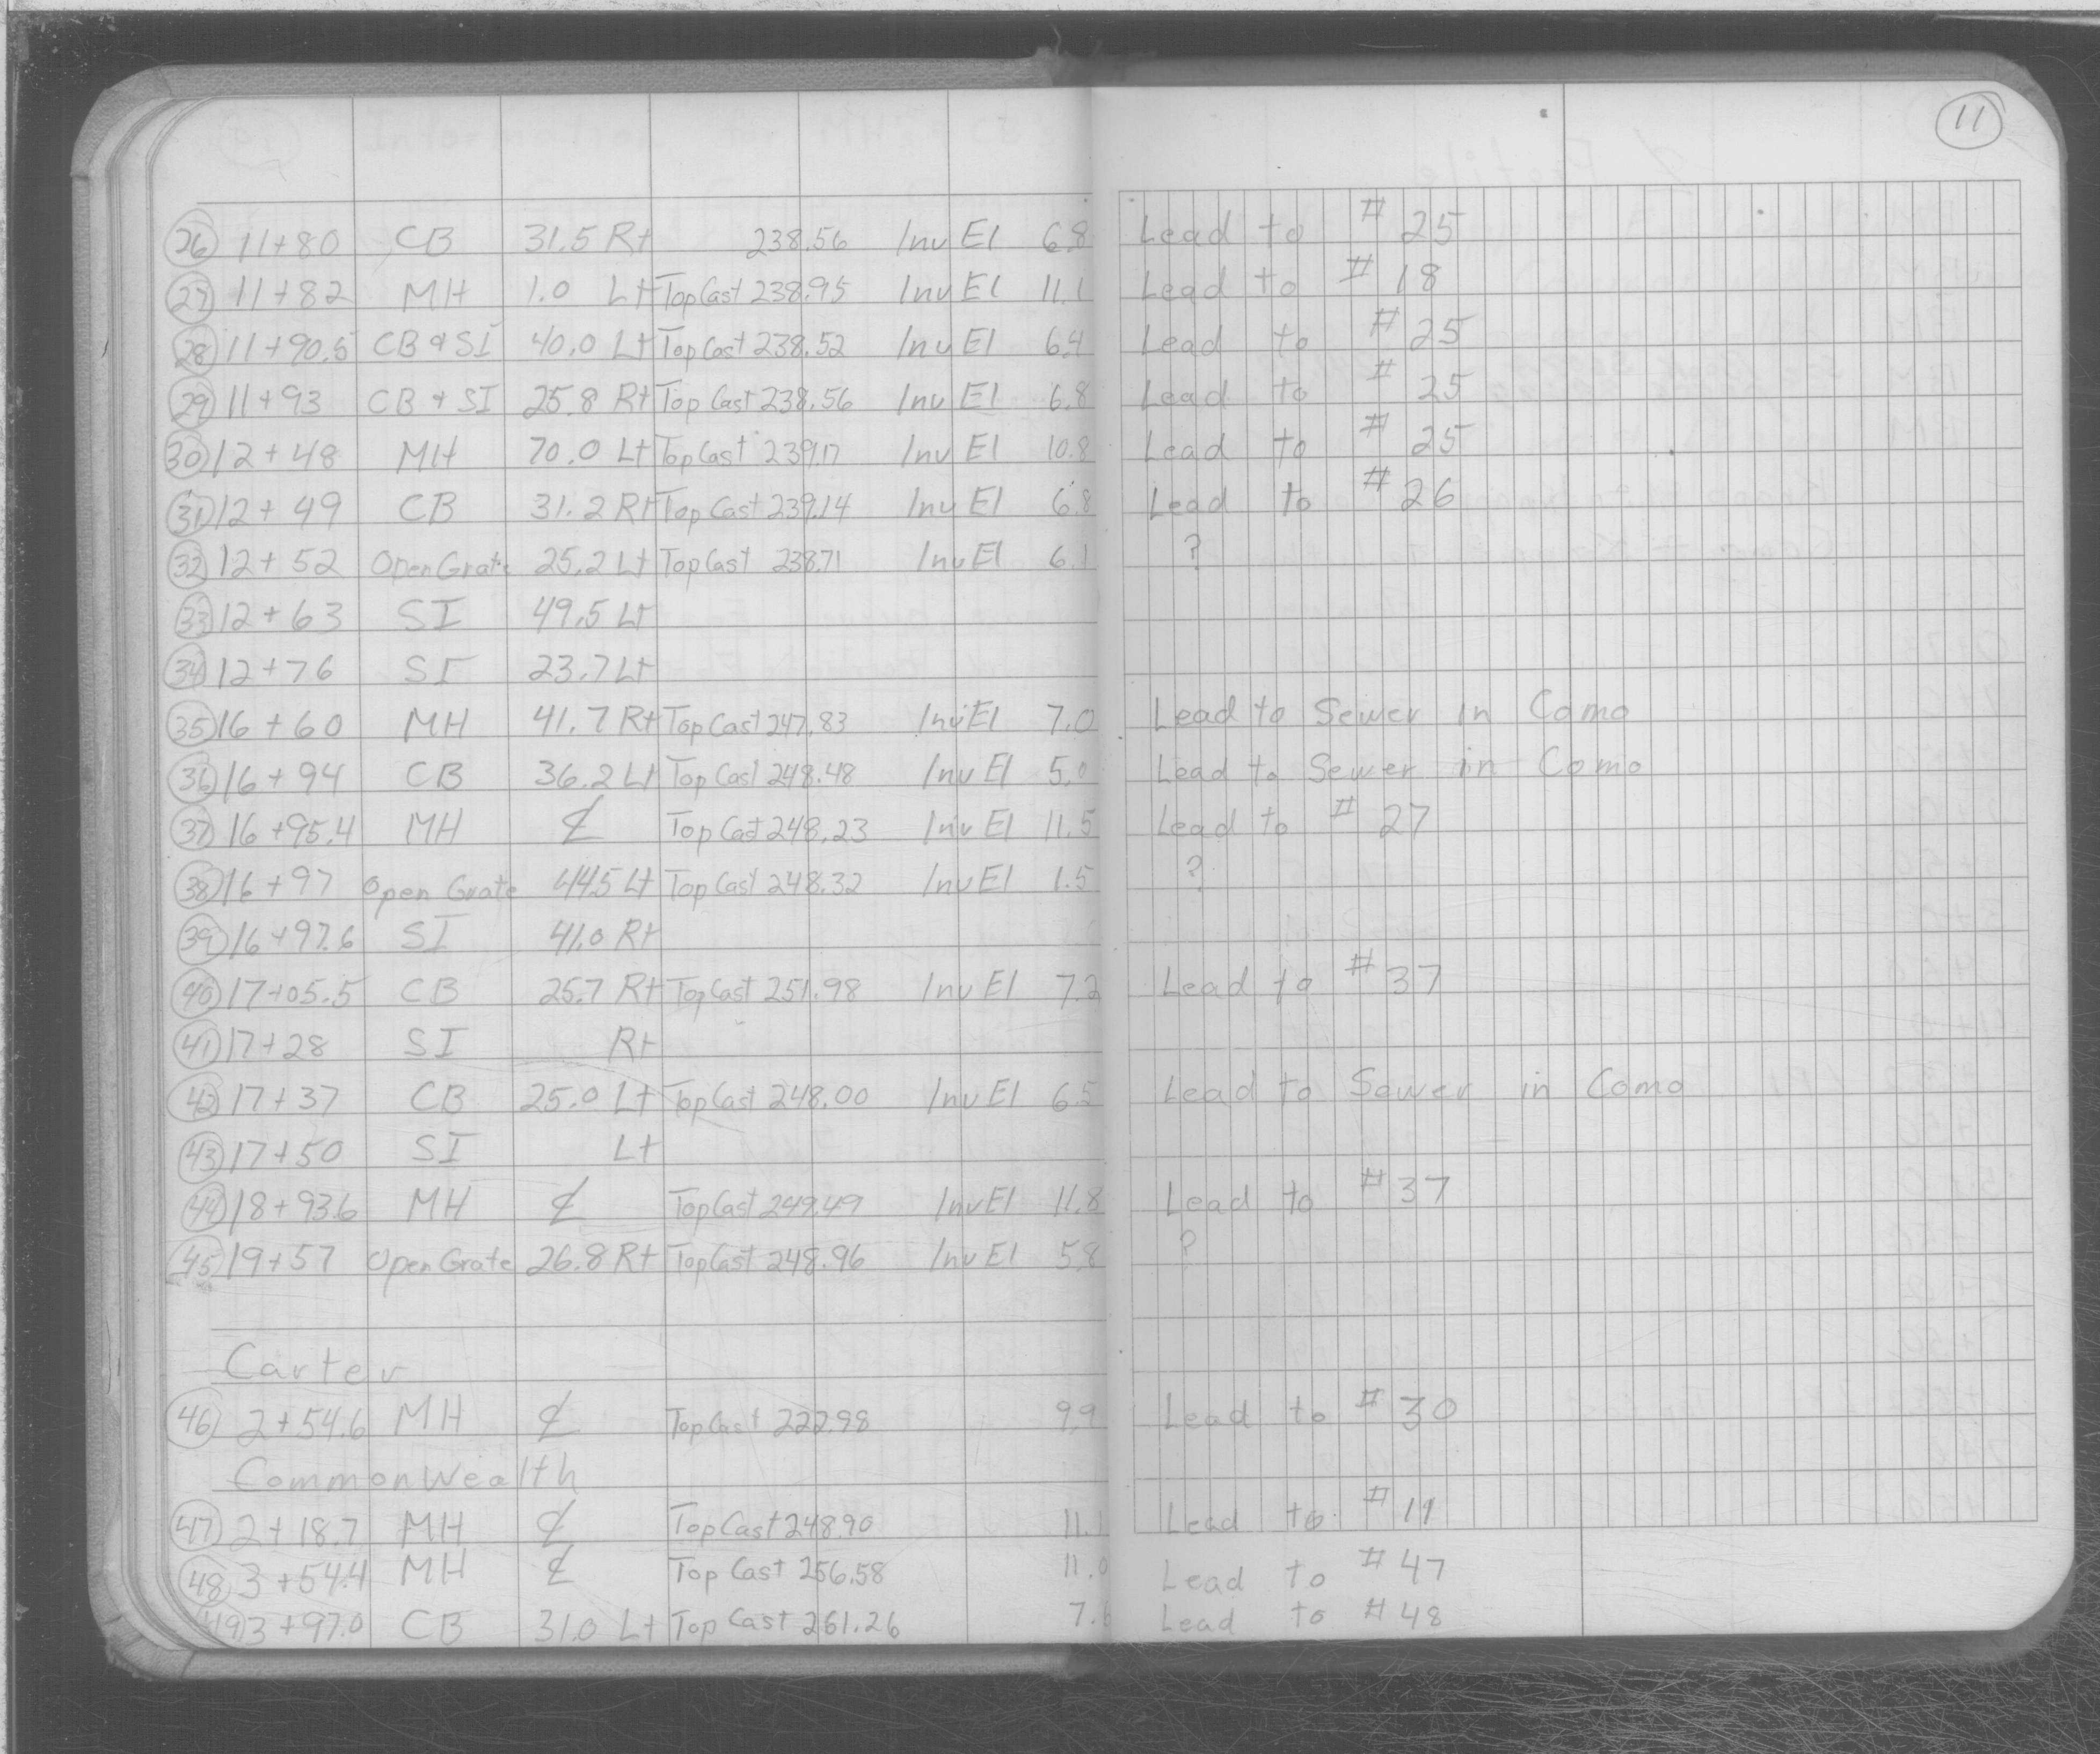 11
26 11+80 CB 31.5 Rt 238.56 Inv El 6.8 Lead to # 25
27 11+82 MH 1.0 Lt Top Cast 238.95 Inv El 11.1 Lead to # 18
28 11+90.5 CB & SI 40.0 Lt Top Cast 238.52 Inv El 6.4 Lead to # 25
29 11+93 CB + SI 25.8 Rt Top Cast 238.56 Inv El 6.8 Lead to # 25
30 12+48 MH 70.0 Lt Top Cast 239.17 Inv El 10.8 Lead to # 25
31 12+49 CB 31.2 Rt Top Cast 239.14 Inv El 6.8 Lead to # 26
32 12+52 Open Grate 25.2 Lt Top Cast 238.71 Inv El 6.1 ?
33 12+63 SI 49.5 Lt
34 12+76 SI 23.7 Lt
35 16+60 MH 41.7 Rt Top Cast 247.83 Inv El 7.0 Lead to Sewer in Como
36 16+94 CB 36.2 Lt Top Cast 248.48 Inv El 5.0 Lead to Sewer in Como
37 16+95.4 MH ℄ Top Cast 248.23 Inv El 11.5 Lead to # 27
38 16+97 Open Grate 44.5 Lt Top Cast 248.32 Inv El 1.5 ?
39 16+97.6 SI 41.0 Rt
40 17+05.5 CB 25.7 Rt Top Cast 251.98 Inv El 7.2 Lead to # 37
41 17+28 SI Rt
42 17+37 CB 25.0 Lt Top Cast 248.00 Inv El 6.5 Lead to Sewer in Como
43 17+50 SI Lt
44 18+93.6 MH ℄ Top Cast 249.49 Inv El 11.8 Lead to # 37
45 19+57 Open Grate 26.8 Rt Top Cast 248.96 Inv El 5.8 ?
Carter
46 2+54.6 MH ℄ Top Cast 222.98 9.9 Lead to # 30
CommonWealth
47 2+18.7 MH ℄ Top Cast 248.90 11.1 Lead to # 11
48 3+54.4 MH ℄ Top Cast 256.58 11.0 Lead to # 47
49 3+97.0 CB 31.0 Lt Top Cast 261.26 7. Lead to # 48